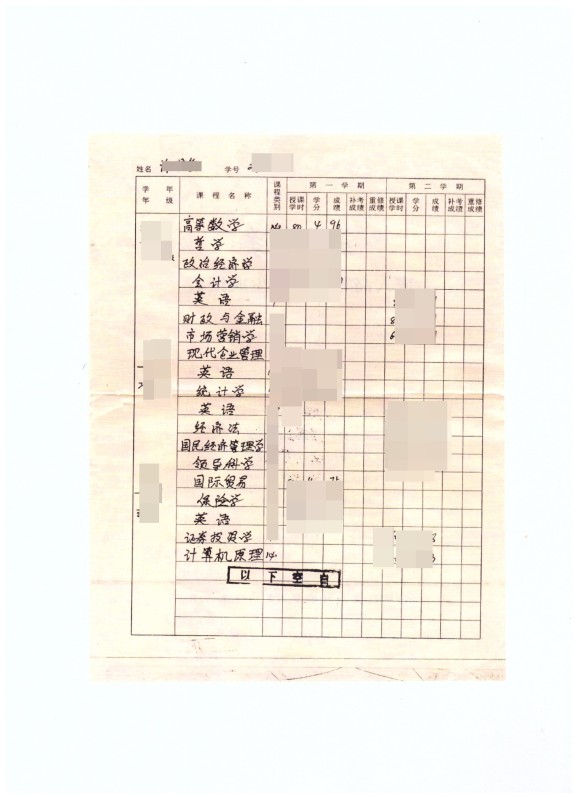 姓名 学号
学年 年级 课程名称 课程类别 第一学期 第二学期
授课学时 学分 成绩 补考成绩 重修成绩 授课学时 学分 成绩 补考成绩 重修成绩
高等数学 80 4 96
哲学
政治经济学
会计学
英语
财政与金融
市场营销学
现代企业管理
英语
统计学
英语
经济法
国民经济管理学
领导科学
国际贸易
保险学
英语
证券投资学
计算机原理
以下空白